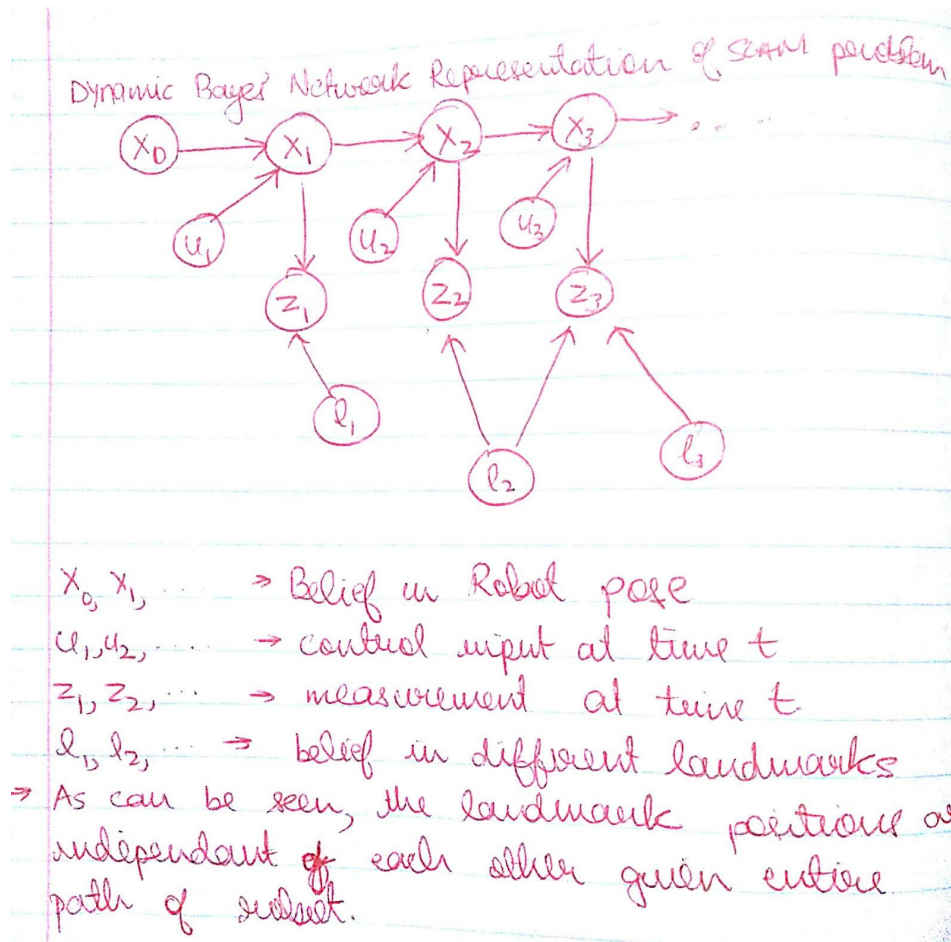 Dynamic Bayes' Network Representation of SLAM problem
X0 X1 X2 X3 ....
u1 u2 u3
Z1 Z2 Z3
l1 l2 l3
X0, X1, .... → Belief in Robot pose
u1, u2, .... → control input at time t
Z1, Z2, ... → measurement at time t
l1, l2, ... → belief in different landmarks
→ As can be seen, the landmark positions
independant of each other given entire
path of robot.